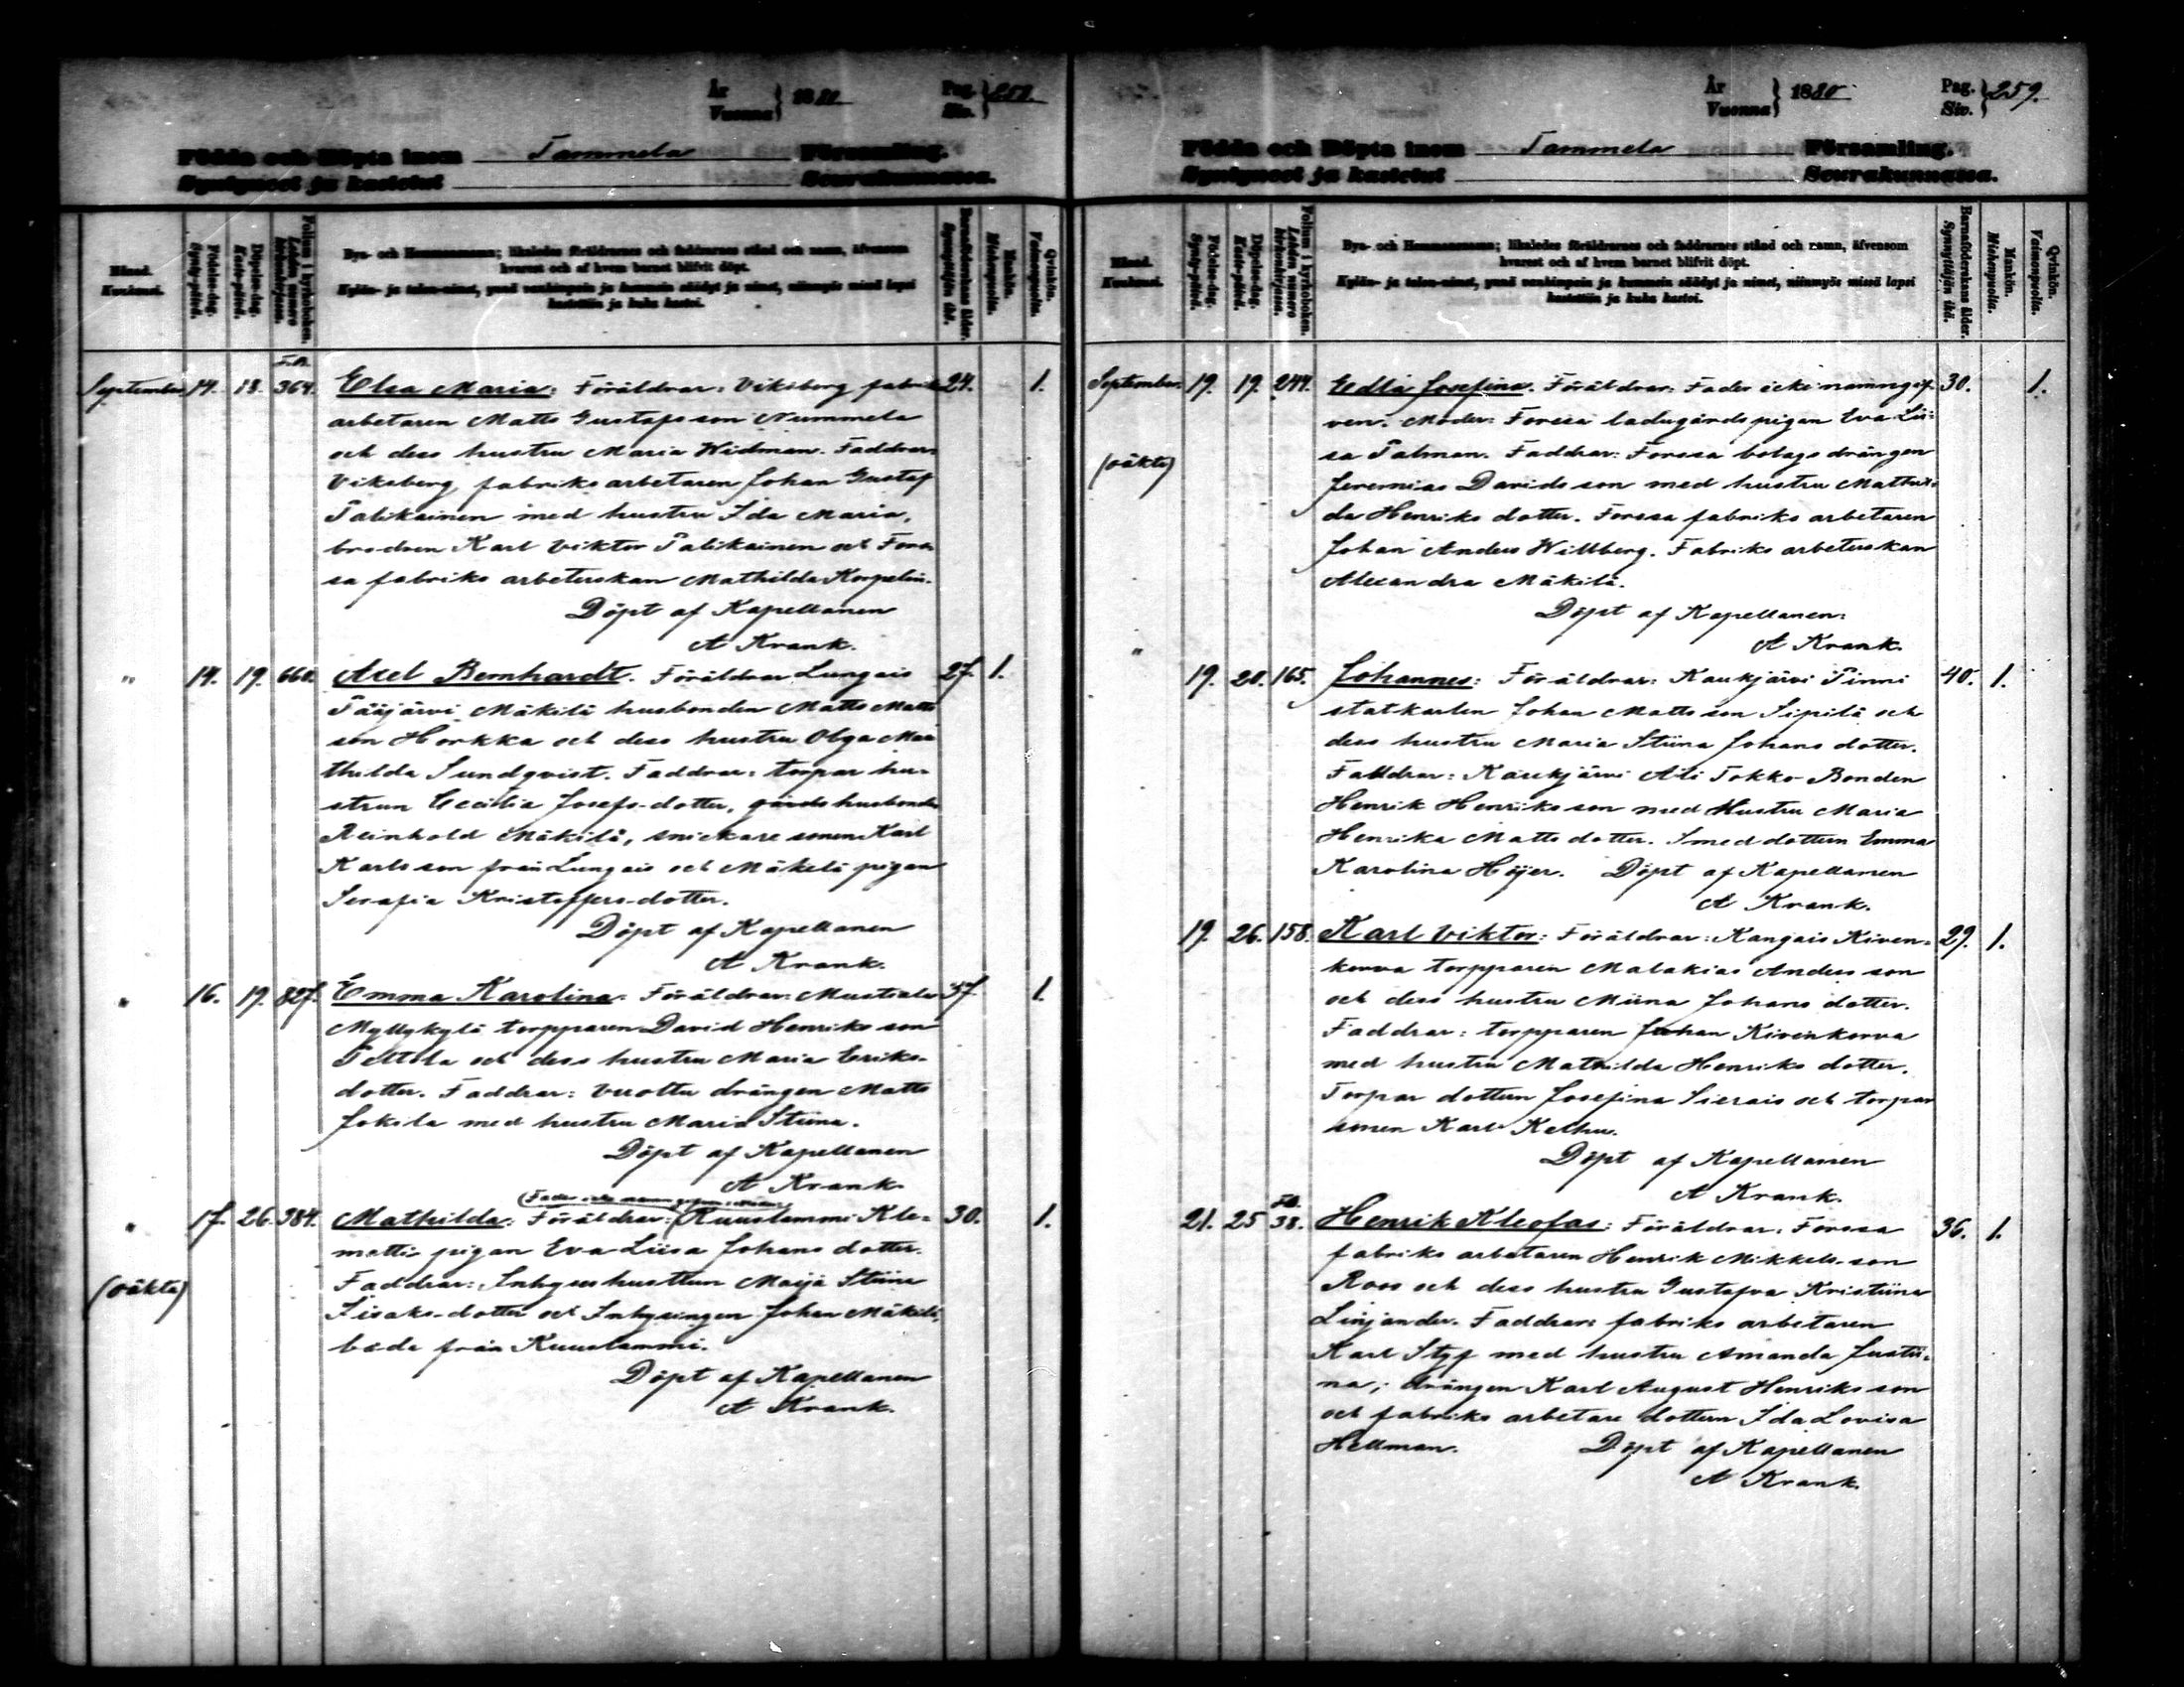 År
Vuonna } 1880
Pag.
Siv. } 258.
Födda och Döpta inom Tammela Församling.
Syntyneet ja kastetut Seurakunnassa.
Månad.
Kuukausi.
Födelse-dag.
Synty-päivä.
Döpelse-dag.
Kaste-päivä.
Folium i kyrkoboken.
Lehden numero kirkonkirjassa.
Bya- och Hemmansnamn; likaledes föräldrarnes och faddrarnes stånd och namn, äfvensom
hvarest och af hvem barnet blifvit döpt.
Kylän- ja talon-nimet, ynnä vanhimpain ja kummein säädyt ja nimet, niinmyös missä lapsi
kastettiin ja kuka kastoi.
Barnaföderskans ålder.
Synnyttäjän ikä.
Mankön.
Miehenpuolia.
Qvinkön.
Vaimonpuolia.
September 14. 18. 364. Elsa Maria: Föräldrar: Viksberg fabriks 24. 1.
arbetaren Matts Gustafsson Nummela
och dess hustru Maria Widman. Faddrar:
Viksberg fabriks arbetaren Johan Gustaf
Palikainen med hustru Ida Maria,
brodren Karl Viktor Palikainen och Fors-
sa fabriks arbeterskan Mathilda Korpelin.
Döpt af Kapellanen
A Krank.
" 14. 19. 660. Axel Bernhardt. Föräldrar Lungais 27. 1.
Pääjärvi Mäkilä husbonden Matts Matts
son Horkka och dess hustru Olga Ma-
thilda Sundqvist. Faddrar: torpar hu-
strun Cecilia Josefs-dotter, gårds husbonden
Reinhold Mäkilä, snickare sonen Karl
Karlsson från Lungais och Mäkilä pigan
Serafia Kristoffers-dotter.
Döpt af Kapellanen
A Krank.
" 16. 19. 827. Emma Karolina: Föräldrar: Mustiala 37 1.
Myllykylä torpparen David Henriksson
Peltola och dess hustru Maria Eriks-
dotter. Faddrar: drängen Matts
Jokila med hustru Maria Stiina.
Döpt af Kapellanen
A Krank.
(Fader icke namngifven. Moder:)
" 17. 26. 384. Mathilda: Föräldrar: Kuuslammi Kle- 30. 1.
metti pigan Eva Liisa Johans dotter.
(oäkta) Faddrar: Inhyses hustrun Maija Stiina
Iisaks-dotter och Inhysingen Johan Mäkilä,
båda från Kuuslammi.
Döpt af Kapellanen
A Krank.
År
Vuonna } 1880
Pag.
Siv. } 259.
Födda och Döpta inom Tammela Församling.
Syntyneet ja kastetut Seurakunnassa.
Månad.
Kuukausi.
Födelse-dag.
Synty-päivä.
Döpelse-dag.
Kaste-päivä.
Folium i kyrkoboken.
Lehden numero kirkonkirjassa.
Bya- och Hemmansnamn; likaledes föräldrarnes och faddrarnes stånd och namn, äfvensom
hvarest och af hvem barnet blifvit döpt.
Kylän- ja talon-nimet, ynnä vanhimpain ja kummein säädyt ja nimet, niinmyös missä lapsi
kastettiin ja kuka kastoi.
Barnaföderskans ålder.
Synnyttäjän ikä.
Mankön.
Miehenpuolia.
Qvinkön.
Vaimonpuolia.
September. 19. 19. 244. Edla Josefina. Föräldrar: Fader icke namngif- 30. 1.
ven. Moder: Forssa ladugårdspigan Eva Lii-
(oäkta) sa Palman. Faddrar: Forssa bolags drängen
Jeremias Davidsson med hustru Mathil-
da Henriks dotter. Forssa fabriks arbetaren
Johan Anders Willberg. Fabriks arbeterskan
Alexandra Mäkilä.
Döpt af Kapellanen:
A Krank.
" 19. 20. 165. Johannes: Föräldrar: Kaukjärvi Pinni 40. 1.
statkarlen Johan Mattsson Sipilä och
dess hustru Maria Stiina Johans dotter.
Faddrar: Kaukjärvi Ali Tokko Bonden
Henrik Henriksson med Hustru Maria
Henrika Matts dotter. Smed dottern Emma
Karolina Höjer. Döpt af Kapellanen
A Krank.
19. 26. 158. Karl Viktor: Föräldrar: Kangais Kiven- 29. 1.
korva torpparen Malakias Andersson
och dess hustru Miina Johans dotter.
Faddrar: torpparen Johan Kivenkorva
med hustru Mathilda Henriks dotter.
Torpar dottern Josefina Sierais och torpar
sonen Karl Kelhu.
Döpt af Kapellanen
A Krank.
21. 25 38. Henrik Kleofas: Föräldrar: Forssa 36. 1.
fabriks arbetaren Henrik Mikkels-son
Roos och dess hustru Gustafva Kristiina
Linjander. Faddrar: fabriks arbetaren
Karl Styf med hustru Amanda Justii-
na; drängen Karl August Henriksson
och fabriks arbetare dottern Ida Lovisa
Hellman. Döpt af Kapellanen
A Krank.